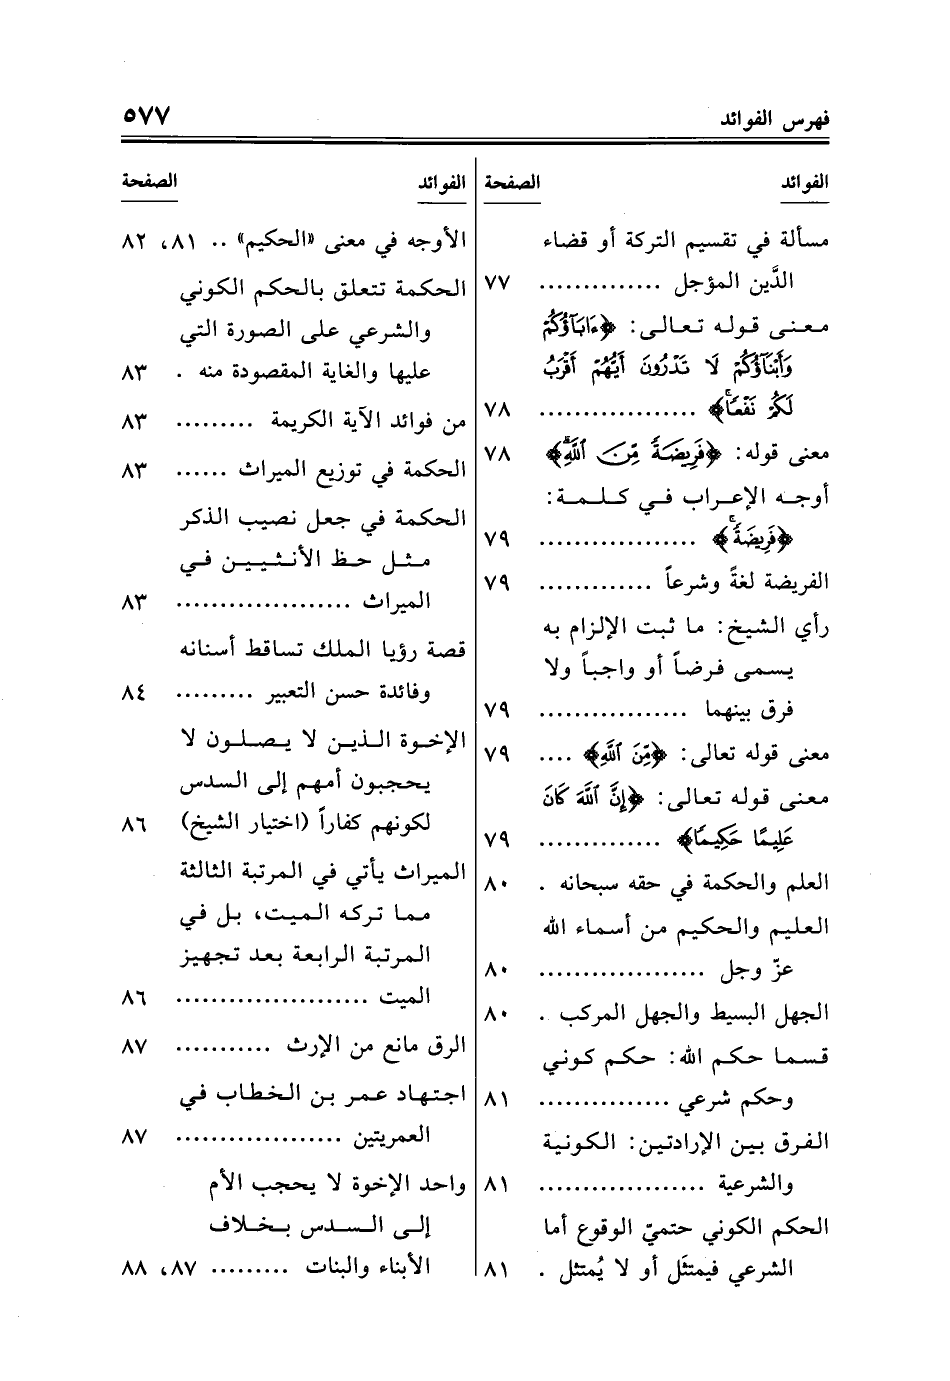 فهرس الفوائد ٥٧٧
الفوائد الصفحة
مسألة في تقسيم التركة أو قضاء
الدَّين المؤجل .............. ٧٧
معنى قوله تعالى: ﴿ءَابَآؤُكُمْ
وَأَبْنَآؤُكُمْ لَا تَدْرُونَ أَيُّهُمْ أَقْرَبُ
لَكُمْ نَفْعًاۚ﴾ .................. ٧٨
معنى قوله: ﴿فَرِيضَةً مِّنَ ٱللَّهِۗ﴾ ٧٨
أوجه الإعراب في كلمة:
﴿فَرِيضَةًۚ﴾ .................. ٧٩
الفريضة لغةً وشرعاً ............. ٧٩
رأي الشيخ: ما ثبت الإلزام به
يسمى فرضاً أو واجباً ولا
فرق بينهما ................. ٧٩
معنى قوله تعالى: ﴿مِّنَ ٱللَّهِ﴾ .... ٧٩
معنى قوله تعالى: ﴿إِنَّ ٱللَّهَ كَانَ
عَلِيمًا حَكِيمًا﴾ .............. ٧٩
العلم والحكمة في حقه سبحانه . ٨٠
العليم والحكيم من أسماء الله
عزّ وجل ................... ٨٠
الجهل البسيط والجهل المركب . ٨٠
قسما حكم الله: حكم كوني
وحكم شرعي ............... ٨١
الفرق بين الإرادتين: الكونية
والشرعية ................... ٨١
الحكم الكوني حتميّ الوقوع أما
الشرعي فيمتثَل أو لا يُمتثل . ٨١
الفوائد الصفحة
الأوجه في معنى «الحكيم» .. ٨١، ٨٢
الحكمة تتعلق بالحكم الكوني
والشرعي على الصورة التي
عليها والغاية المقصودة منه . ٨٣
من فوائد الآية الكريمة ......... ٨٣
الحكمة في توزيع الميراث ...... ٨٣
الحكمة في جعل نصيب الذكر
مثل حظ الأنثيين في
الميراث .................... ٨٣
قصة رؤيا الملك تساقط أسنانه
وفائدة حسن التعبير ......... ٨٤
الإخوة الذين لا يصلون لا
يحجبون أمهم إلى السدس
لكونهم كفاراً (اختيار الشيخ) ٨٦
الميراث يأتي في المرتبة الثالثة
مما تركه الميت، بل في
المرتبة الرابعة بعد تجهيز
الميت ...................... ٨٦
الرق مانع من الإرث ........... ٨٧
اجتهاد عمر بن الخطاب في
العمريتين ................... ٨٧
واحد الإخوة لا يحجب الأم
إلى السدس بخلاف
الأبناء والبنات ......... ٨٧، ٨٨